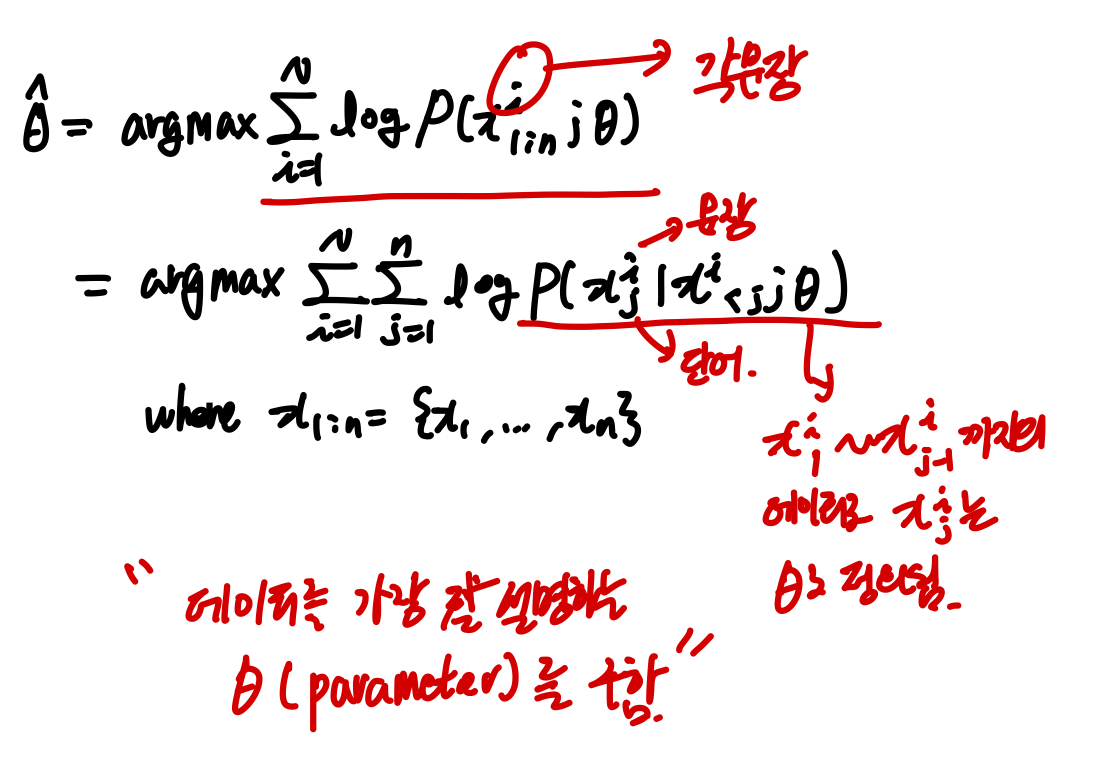 θ̂ = argmax ∑_{i=1}^{N} log P(x^i_{1:n}; θ) 각 문장
= argmax ∑_{i=1}^{N} ∑_{j=1}^{n} log P(x^i_j | x^i_{<j}; θ) 문장
단어.
where x_{1:n} = {x_1, ..., x_n}
x^i_1 ~ x^i_{j-1} 까지의
데이터로 x^i_j는
θ로 정의됨.
"데이터를 가장 잘 설명하는
θ (parameter)를 구함."